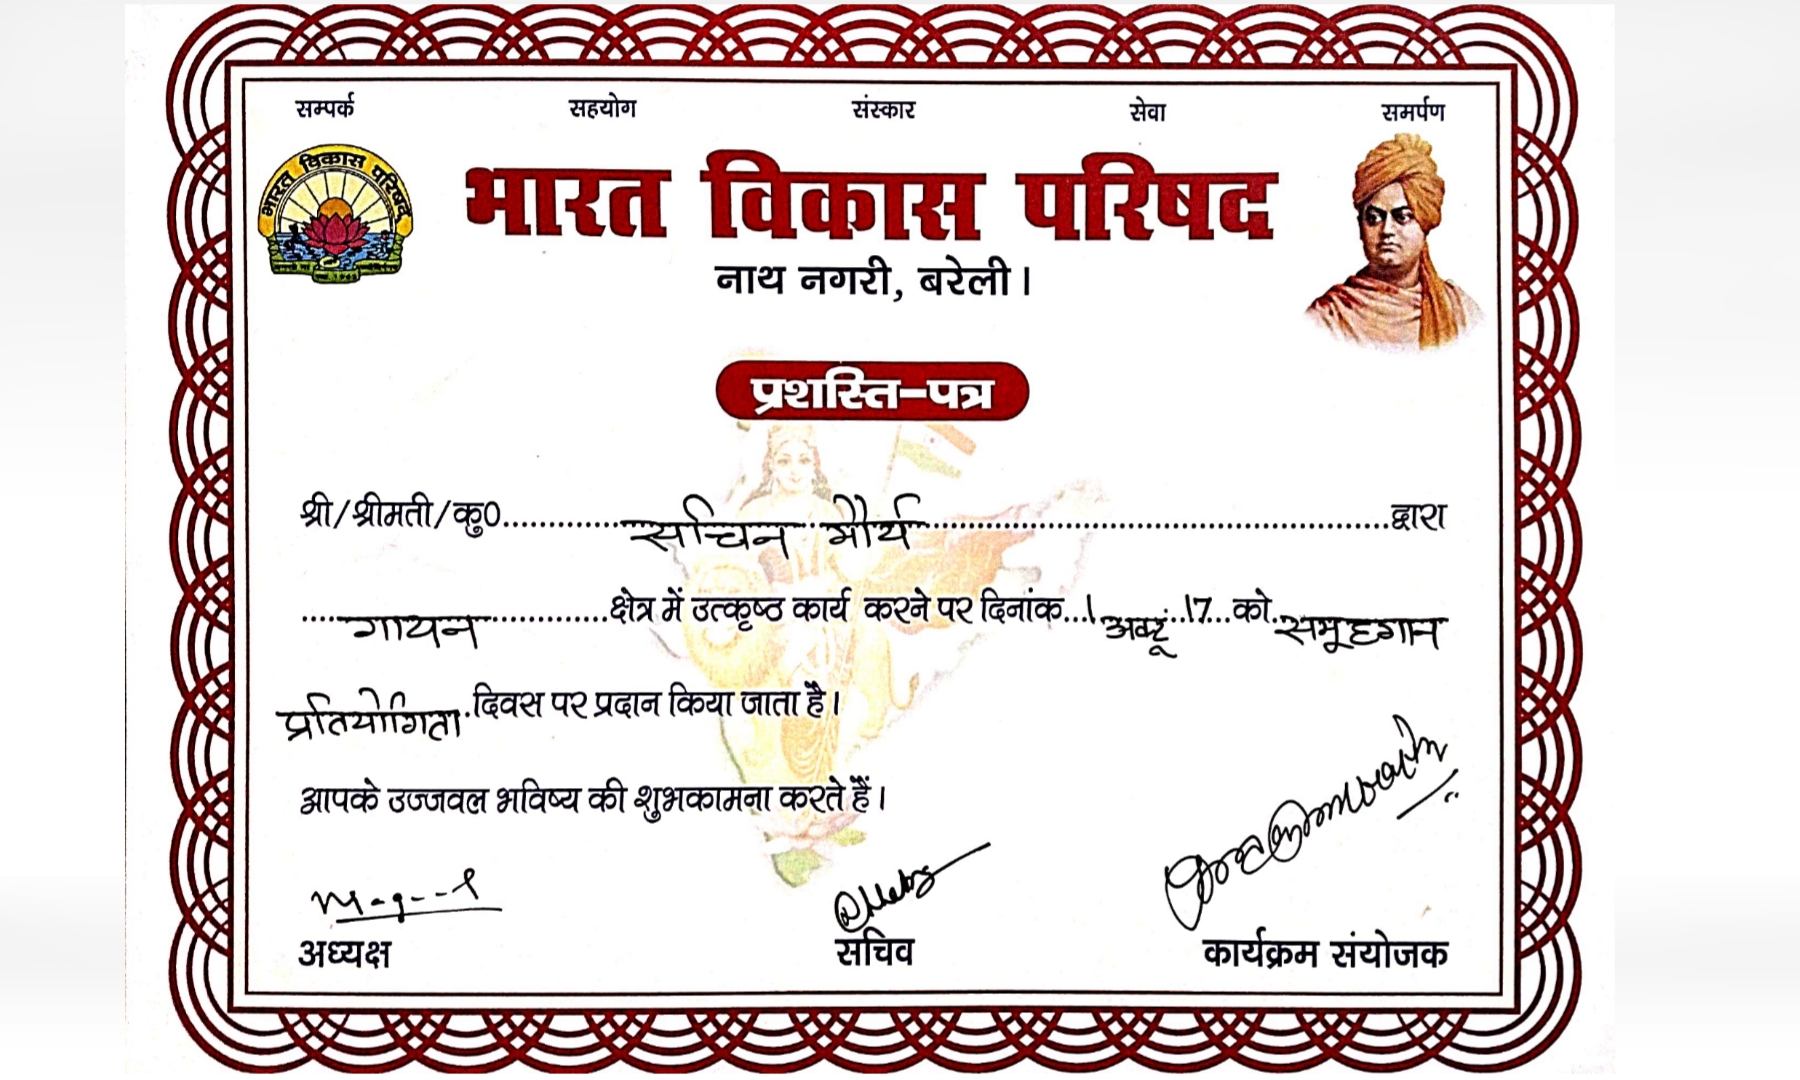 सम्पर्क सहयोग संस्कार सेवा समर्पण
भारत विकास परिषद
भारत विकास परिषद
नाथ नगरी, बरेली।
प्रशस्ति-पत्र
श्री/श्रीमती/कु0 सचिन मौर्य द्वारा
गायन क्षेत्र में उत्कृष्ठ कार्य करने पर दिनांक 1 अक्टू 17 को समूहगान
प्रतियोगिता दिवस पर प्रदान किया जाता है।
आपके उज्जवल भविष्य की शुभकामना करते हैं।
अध्यक्ष सचिव कार्यक्रम संयोजक